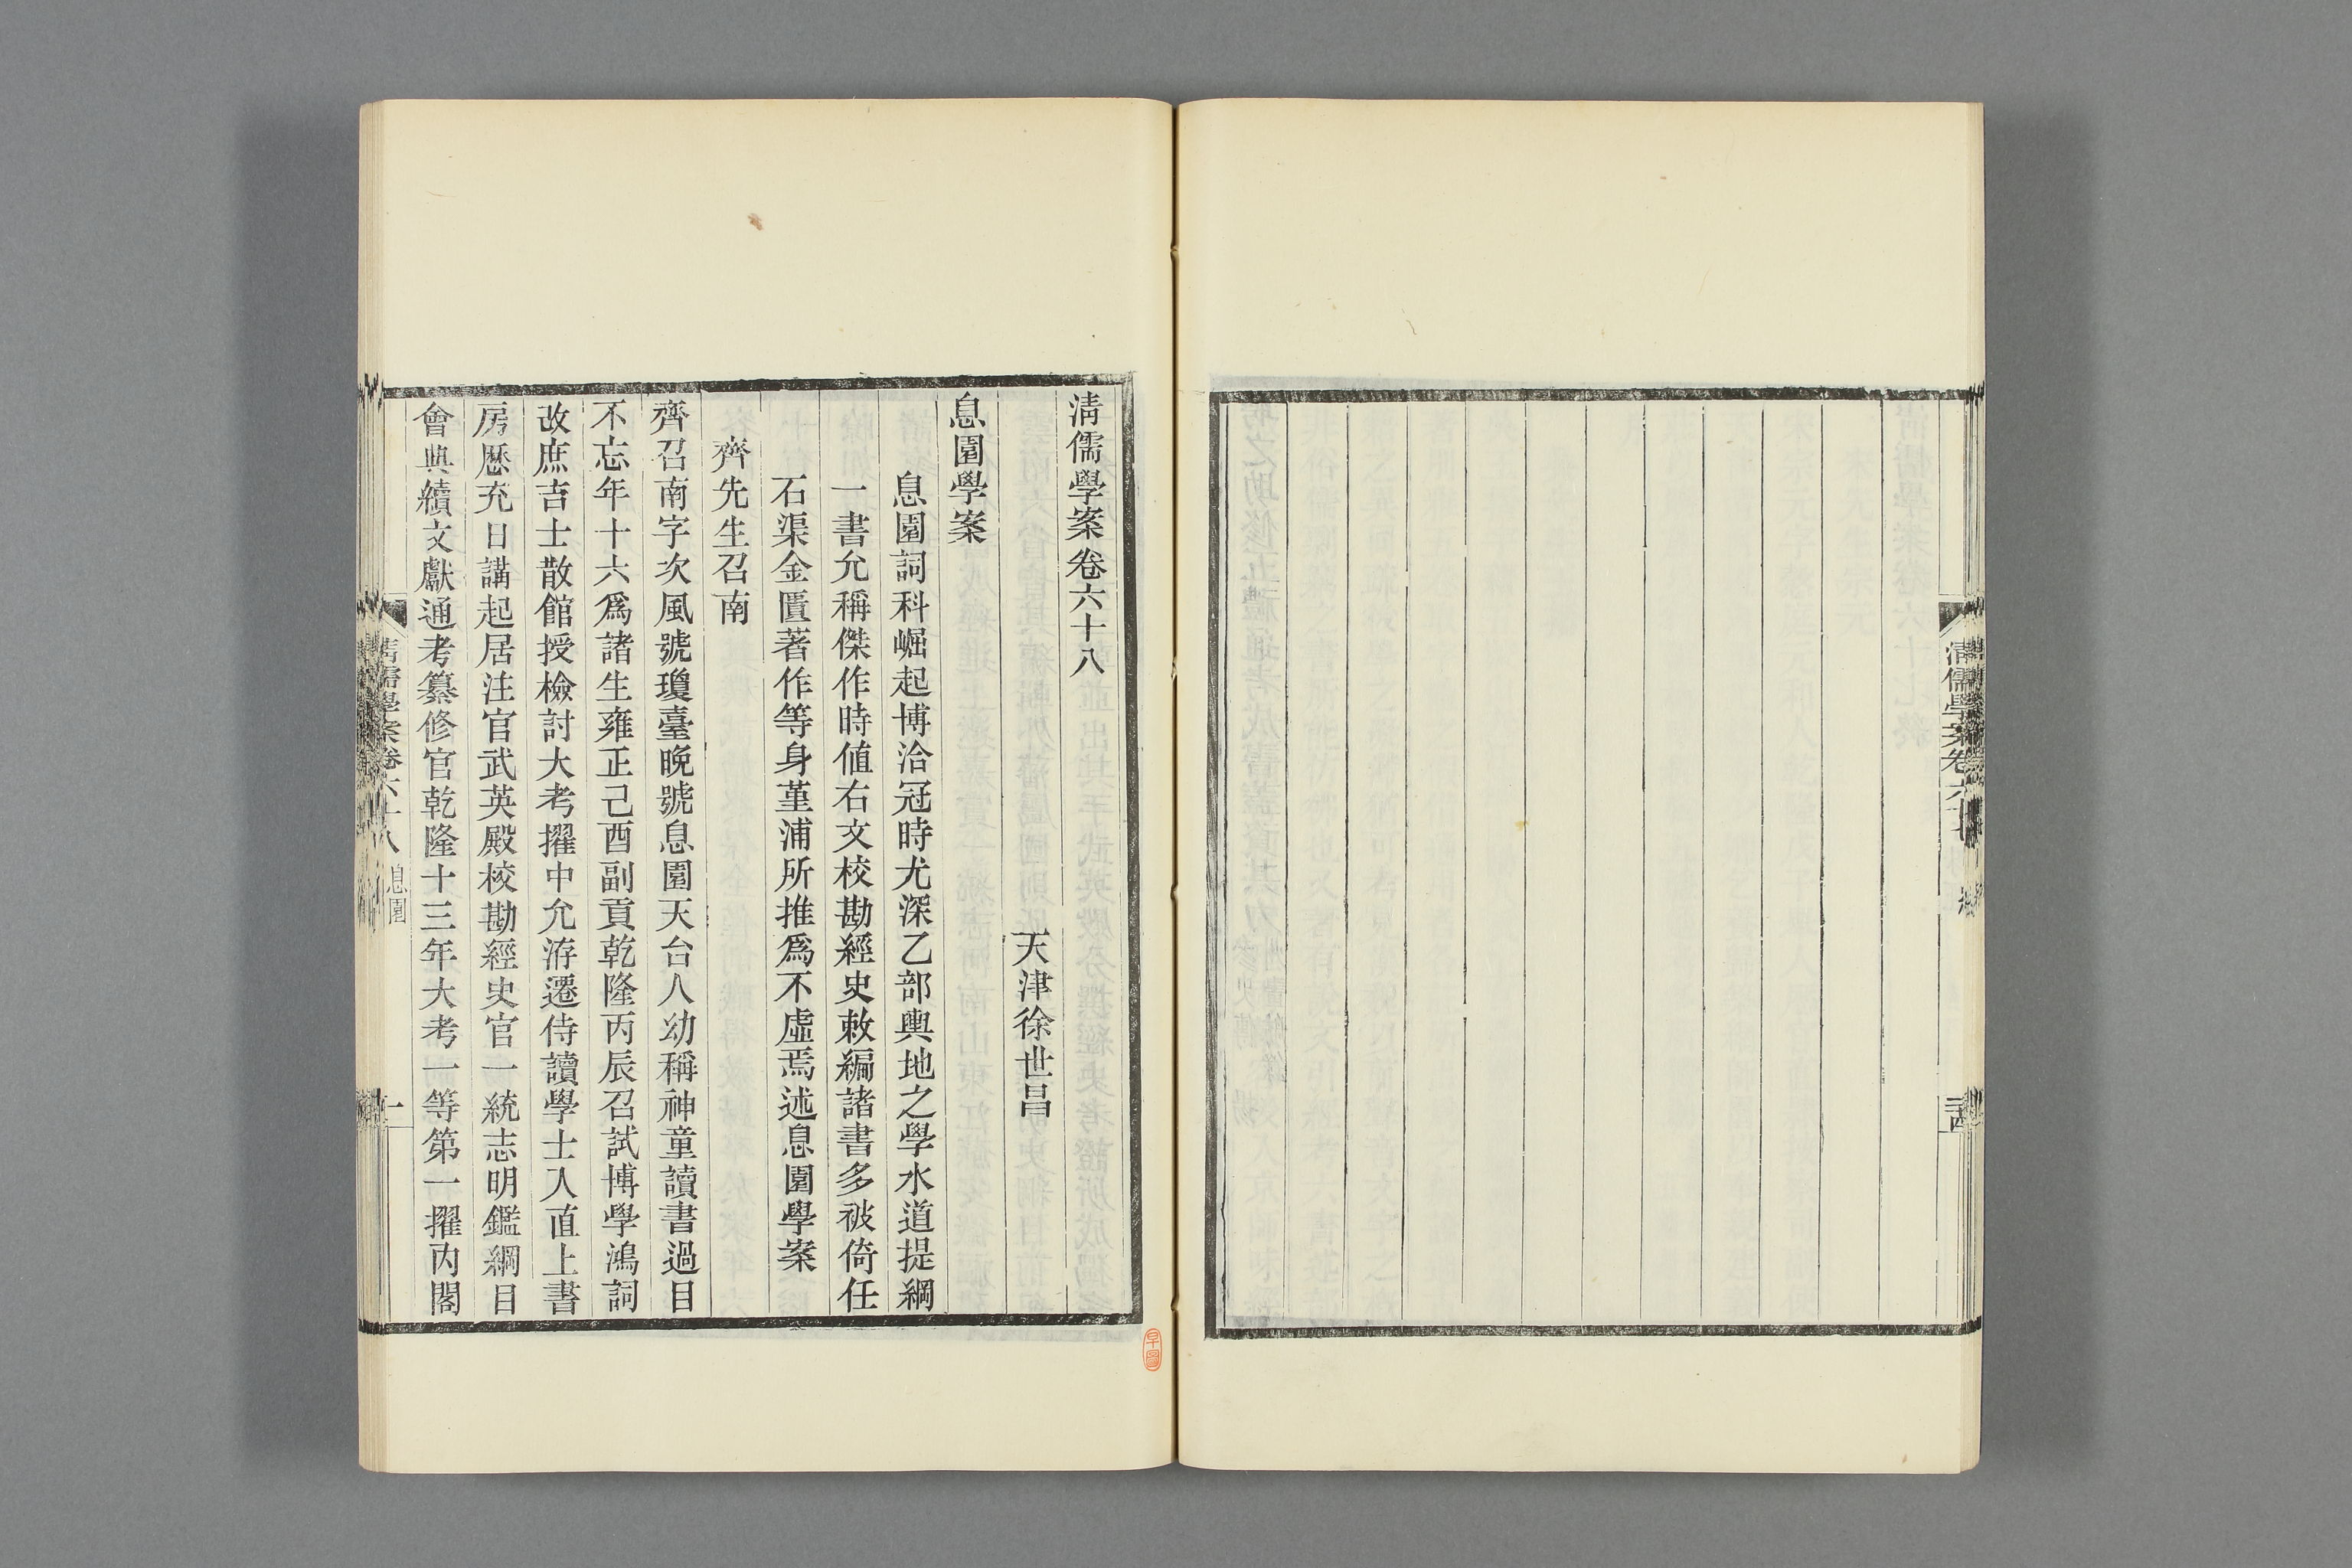 清儒學案卷六十八
天津徐世昌
息園學案
息園詞科崛起博洽冠時尤深乙部輿地之學水道提綱
一書允稱傑作時値右文校勘經史敕編諸書多被倚任
石渠金匱著作等身堇浦所推爲不虛焉述息園學案
齊先生召南
齊召南字次風號瓊臺晚號息園天台人幼稱神童讀書過目
不忘年十六爲諸生雍正己酉副貢乾隆丙辰召試博學鴻詞
改庶吉士散館授檢討大考擢中允洊遷侍讀學士入直上書
房歷充日講起居注官武英殿校勘經史官一統志明鑑綱目
會典續文獻通考纂修官乾隆十三年大考一等第一擢內閣
清儒學案卷六十八
息園
一